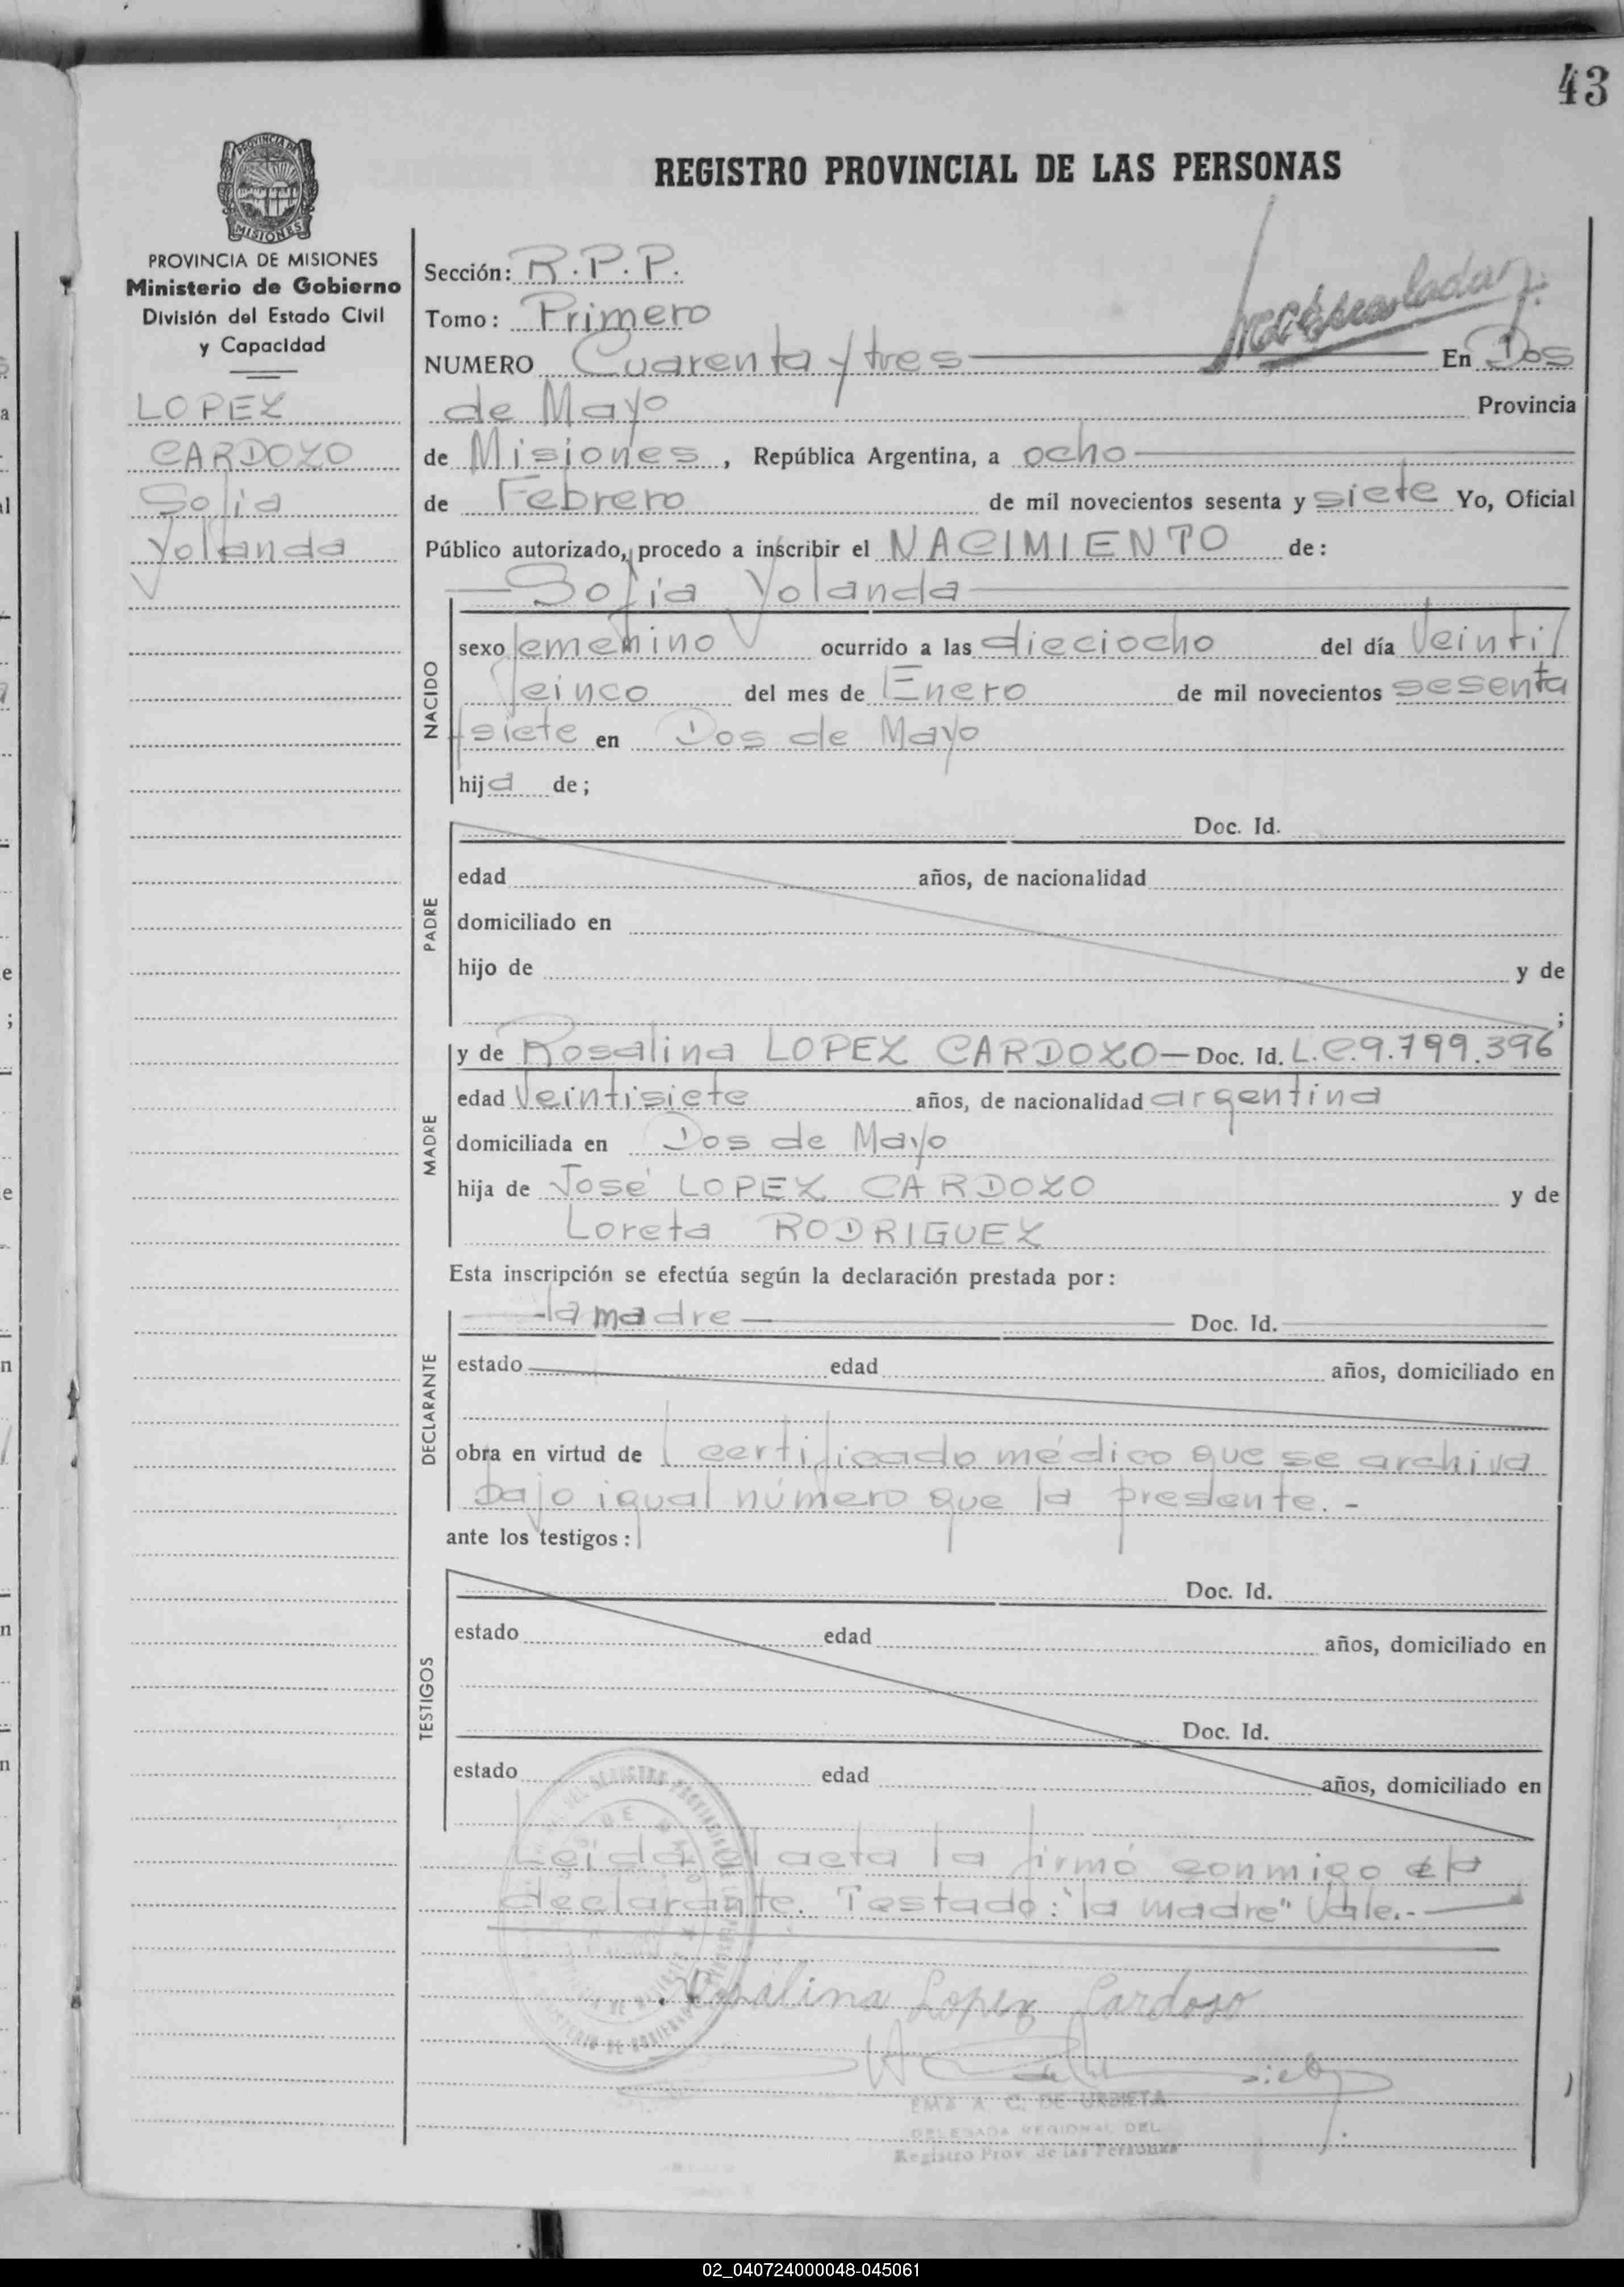 43
REGISTRO PROVINCIAL DE LAS PERSONAS
PROVINCIA DE
MISIONES
PROVINCIA DE MISIONES
Ministerio de Gobierno
División del Estado Civil
y Capacidad
LOPEZ
CARDOZO
Sofia
Yolanda
Sección: R.P.P.
Tomo: Primero
NUMERO Cuarenta y tres En Dos
de Mayo Provincia
de Misiones, República Argentina, a ocho
de Febrero de mil novecientos sesenta y siete Yo, Oficial
Público autorizado, procedo a inscribir el NACIMIENTO de:
Sofia Yolanda
NACIDO
sexo femenino ocurrido a las dieciocho del día veinti
cinco del mes de Enero de mil novecientos sesenta
siete en Dos de Mayo
hija de;
PADRE
Doc. Id.
edad años, de nacionalidad
domiciliado en
hijo de y de
;
MADRE
y de Rosalina LOPEZ CARDOZO— Doc. Id. L.C.9.799.396
edad Veintisiete años, de nacionalidad argentina
domiciliada en Dos de Mayo
hija de José LOPEZ CARDOZO y de
Loreta RODRIGUEZ
Esta inscripción se efectúa según la declaración prestada por:
DECLARANTE
la madre Doc. Id.
estado edad años, domiciliado en
obra en virtud de certificado médico que se archiva
bajo igual número que la presente.-
ante los testigos:
TESTIGOS
Doc. Id.
estado edad años, domiciliado en
Doc. Id.
estado edad años, domiciliado en
Leida el acta la firmó conmigo la
declarante. Testado: "la madre" Vale.-
Rosalina Lopez Cardozo
EMA A. C. DE URBIETA
DELEGADA REGIONAL DEL
Registro Prov. de las Personas
02_040724000048-045061